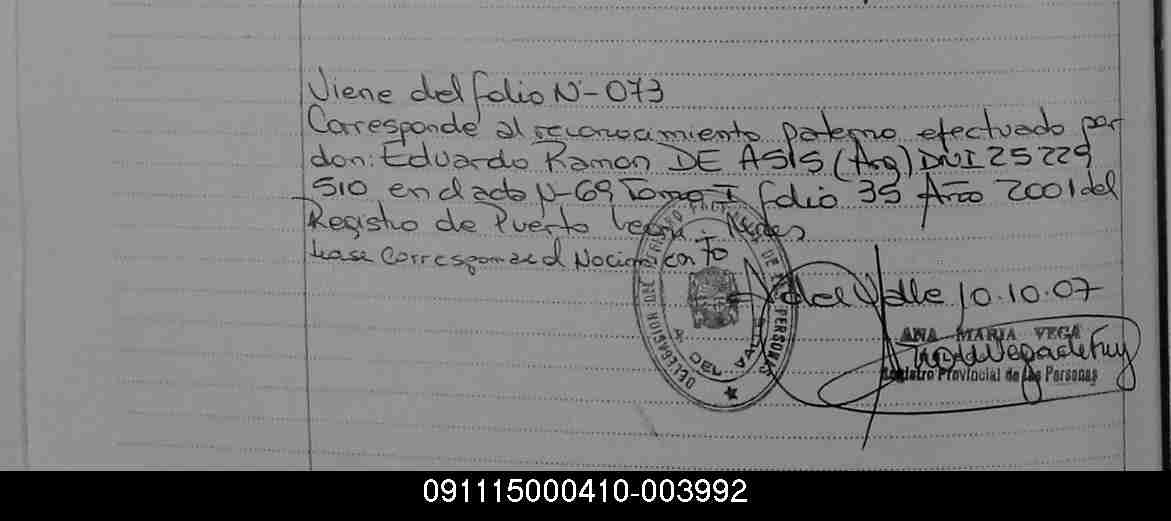 Viene del folio N-073
Corresponde al reconocimiento paterno efectuado por
don: Eduardo Ramon DE ASIS (Arg) DNI 25229
510 en el acta N-69 Tomo I folio 35 Año 2001 del
Registro de Puerto
Corresponde al Nacimiento
A del Valle 10.10.07
ANA MARIA VEGA
Registro Provincial de las Personas
DELEGACION DEL REGISTRO PROVINCIAL DE LAS PERSONAS
A. DEL VALLE
091115000410-003992